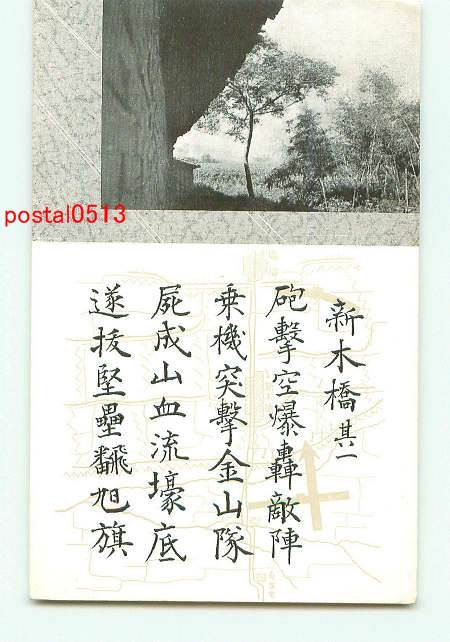 postal0513
新木橋 其一
砲擊空爆轟敵陣
乗機突擊金山隊
屍成山血流壕底
遂拔堅壘飜旭旗